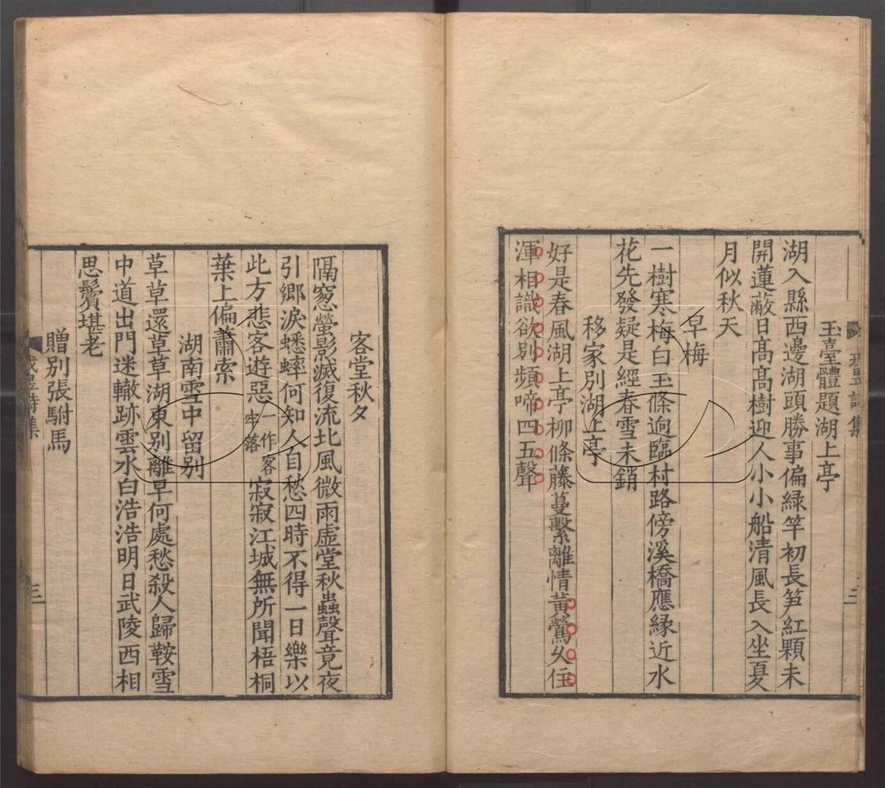 戎昱詩集
三
玉臺體題湖上亭
湖入縣西邊湖頭勝事偏緑竿初長笋紅顆未
開蓮蔽日髙髙樹迎人小小船清風長入坐夏
月似秋天
早梅
一樹寒梅白玉條逈臨村路傍溪橋應縁近水
花先發疑是經春雪未銷
移家别湖上亭
好是春風湖上亭柳條藤蔓繫離情黄鶯乆住
渾相識欲别頻啼四五聲
客堂秋夕
隔窻螢影滅復流北風微雨虛堂秋蟲聲竟夜
引鄉淚蟋蟀何知人自愁四時不得一日樂以
此方悲客遊惡一作客牢落寂寂江城無所聞梧桐
葉上偏蕭索
湖南雪中留别
草草還草草湖東别離早何處愁殺人歸鞍雪
中道出門迷轍跡雲水白浩浩明日武陵西相
思鬢堪老
贈别張駙馬
戎昱詩集
三